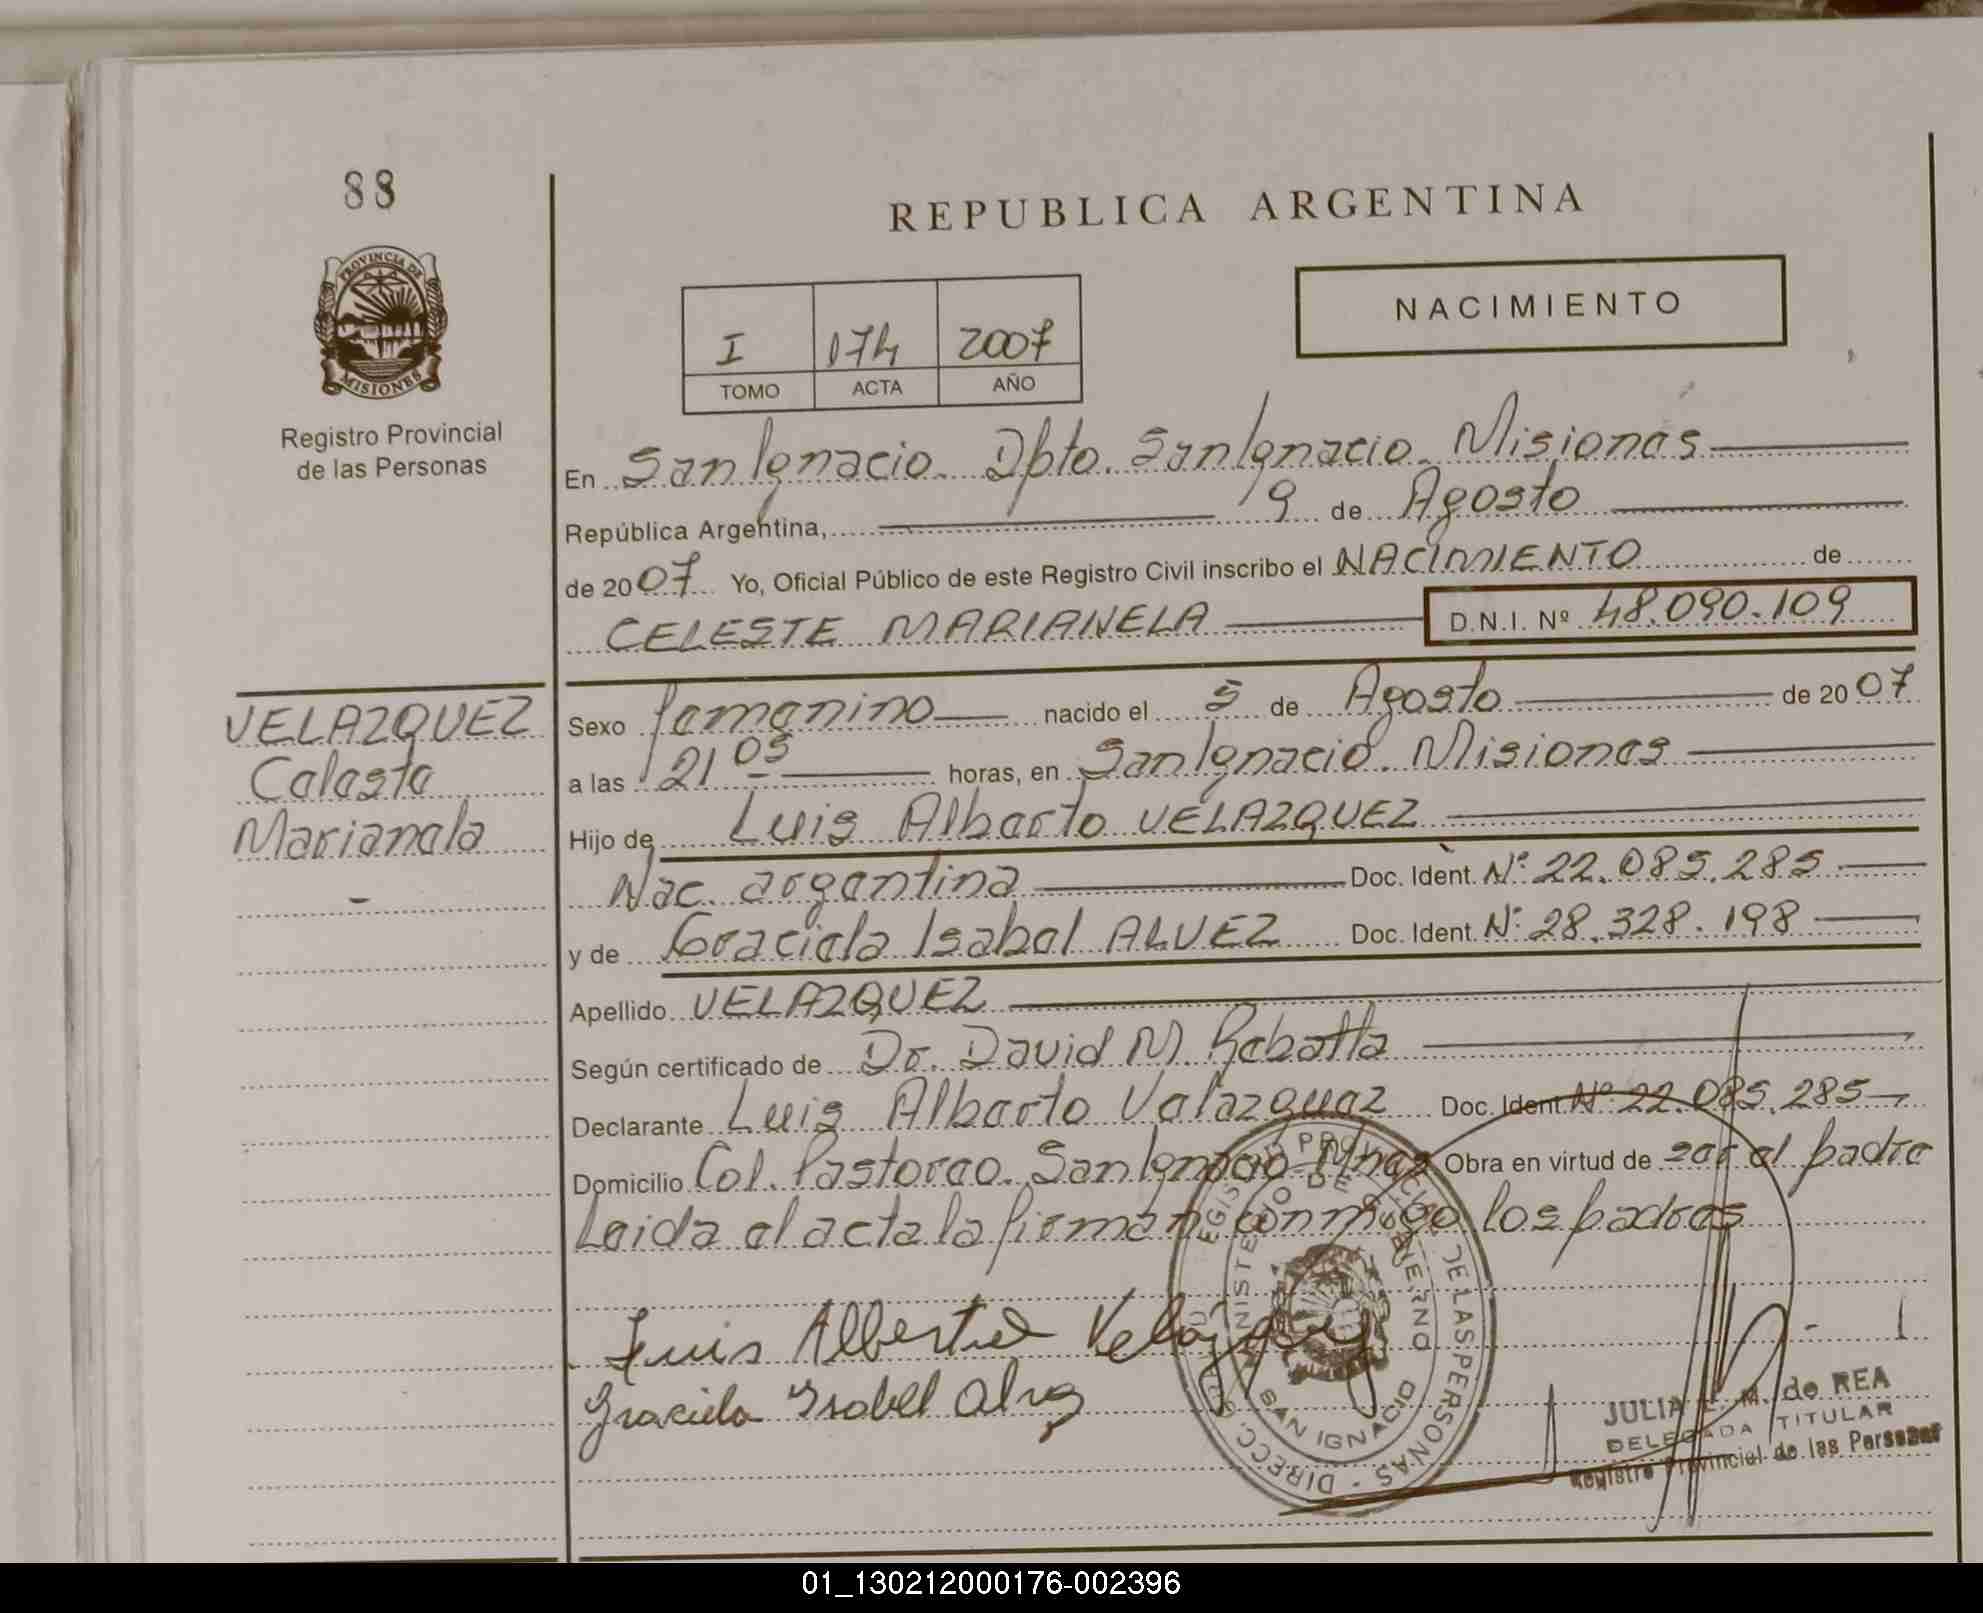 88
REPUBLICA ARGENTINA
PROVINCIA DE
MISIONES
Registro Provincial
de las Personas
NACIMIENTO
I 174 2007
TOMO ACTA AÑO
En San Ignacio. Dpto. San Ignacio. Misiones
República Argentina, 9 de Agosto
de 2007 Yo, Oficial Público de este Registro Civil inscribo el NACIMIENTO de
CELESTE MARIANELA D.N.I. Nº 48.090.109
VELAZQUEZ
Celeste
Marianela
-
Sexo femenino nacido el 5 de Agosto de 2007
a las 21 05 horas, en San Ignacio. Misiones
Hijo de Luis Alberto VELAZQUEZ
Nac. argentina Doc. Ident. Nº 22.085.285
y de Graciela Isabel ALVEZ Doc. Ident. Nº 28.328.198
Apellido VELAZQUEZ
Según certificado de Dr. David M. Rebatta
Declarante Luis Alberto Velazquez Doc. Ident. Nº 22.085.285
Domicilio Col. Pastoreo. San Ignacio Mnes Obra en virtud de ser el padre
Leida el acta la firman conmigo los padres
Luis Alberto Velazquez
Graciela Isabel Alvez
REGISTRO PROVINCIAL DE LAS PERSONAS - DIRECC. GRAL.
MINISTERIO DE GOBIERNO
SAN IGNACIO
JULIA M. de REA
DELEGADA TITULAR
Registro Provincial de las Personas
01_130212000176-002396